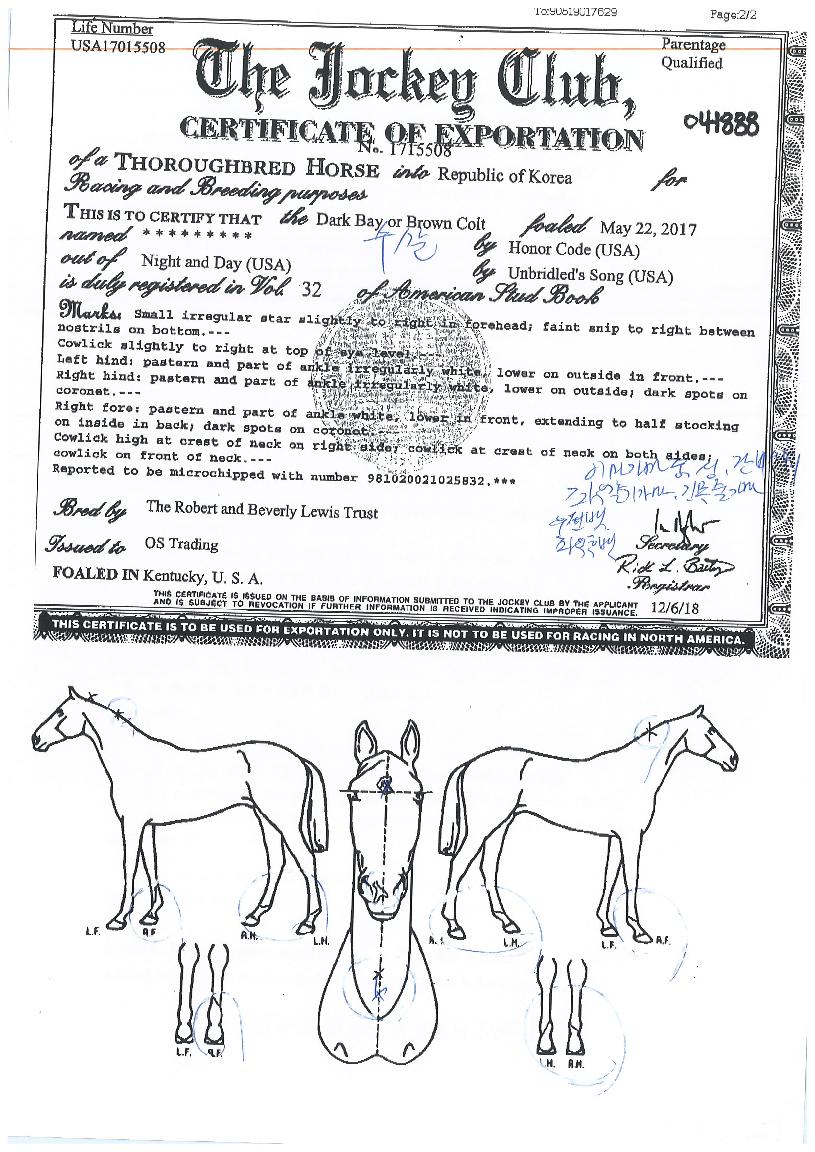 To:90519017629 Page:2/2
Life Number
USA17015508
Parentage
Qualified
The Jockey Club,
041888
CERTIFICATE OF EXPORTATION
No. 1715508
of a THOROUGHBRED HORSE into Republic of Korea for
Racing and Breeding purposes
THIS IS TO CERTIFY THAT the Dark Bay or Brown Colt foaled May 22, 2017
named * * * * * * * * * by Honor Code (USA)
out of Night and Day (USA) by Unbridled's Song (USA)
is duly registered in Vol. 32 of American Stud Book
Marks: Small irregular star slightly to right in forehead; faint snip to right between
nostrils on bottom.---
Cowlick slightly to right at top of eye level.---
Left hind: pastern and part of ankle irregularly white, lower on outside in front.---
Right hind: pastern and part of ankle irregularly white, lower on outside; dark spots on
coronet.---
Right fore: pastern and part of ankle white, lower in front, extending to half stocking
on inside in back; dark spots on coronet.---
Cowlick high at crest of neck on right side; cowlick at crest of neck on both sides;
cowlick on front of neck.---
Reported to be microchipped with number 981020021025832.***
Bred by The Robert and Beverly Lewis Trust
Issued to OS Trading
Secretary
FOALED IN Kentucky, U. S. A.
Registrar
THIS CERTIFICATE IS ISSUED ON THE BASIS OF INFORMATION SUBMITTED TO THE JOCKEY CLUB BY THE APPLICANT
AND IS SUBJECT TO REVOCATION IF FURTHER INFORMATION IS RECEIVED INDICATING IMPROPER ISSUANCE. 12/6/18
THIS CERTIFICATE IS TO BE USED FOR EXPORTATION ONLY. IT IS NOT TO BE USED FOR RACING IN NORTH AMERICA.
L.F. R.F. R.H. L.H. L.H. L.F. R.F.
L.F. R.F. L.H. R.H.